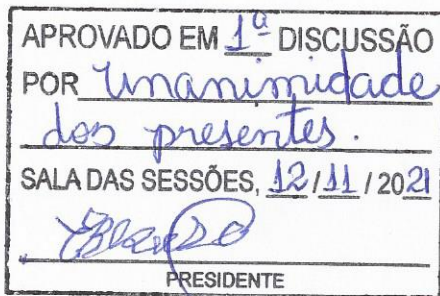 APROVADO EM 1ª DISCUSSÃO
POR Unanimidade
dos presentes.
SALA DAS SESSÕES, 12 / 11 / 2021
PRESIDENTE